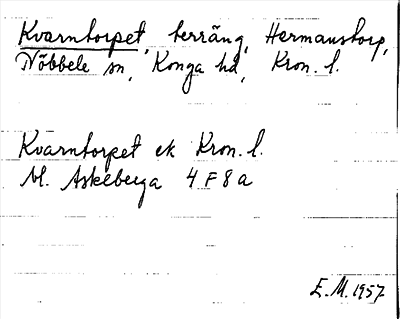 Kvarntorpet, terräng, Hermanstorp,
Nöbbele sn, Konga hd, Kron. l.
Kvarntorpet ek Kron. l.
bl. Askeberga 4 F 8 a
E. M. 1957